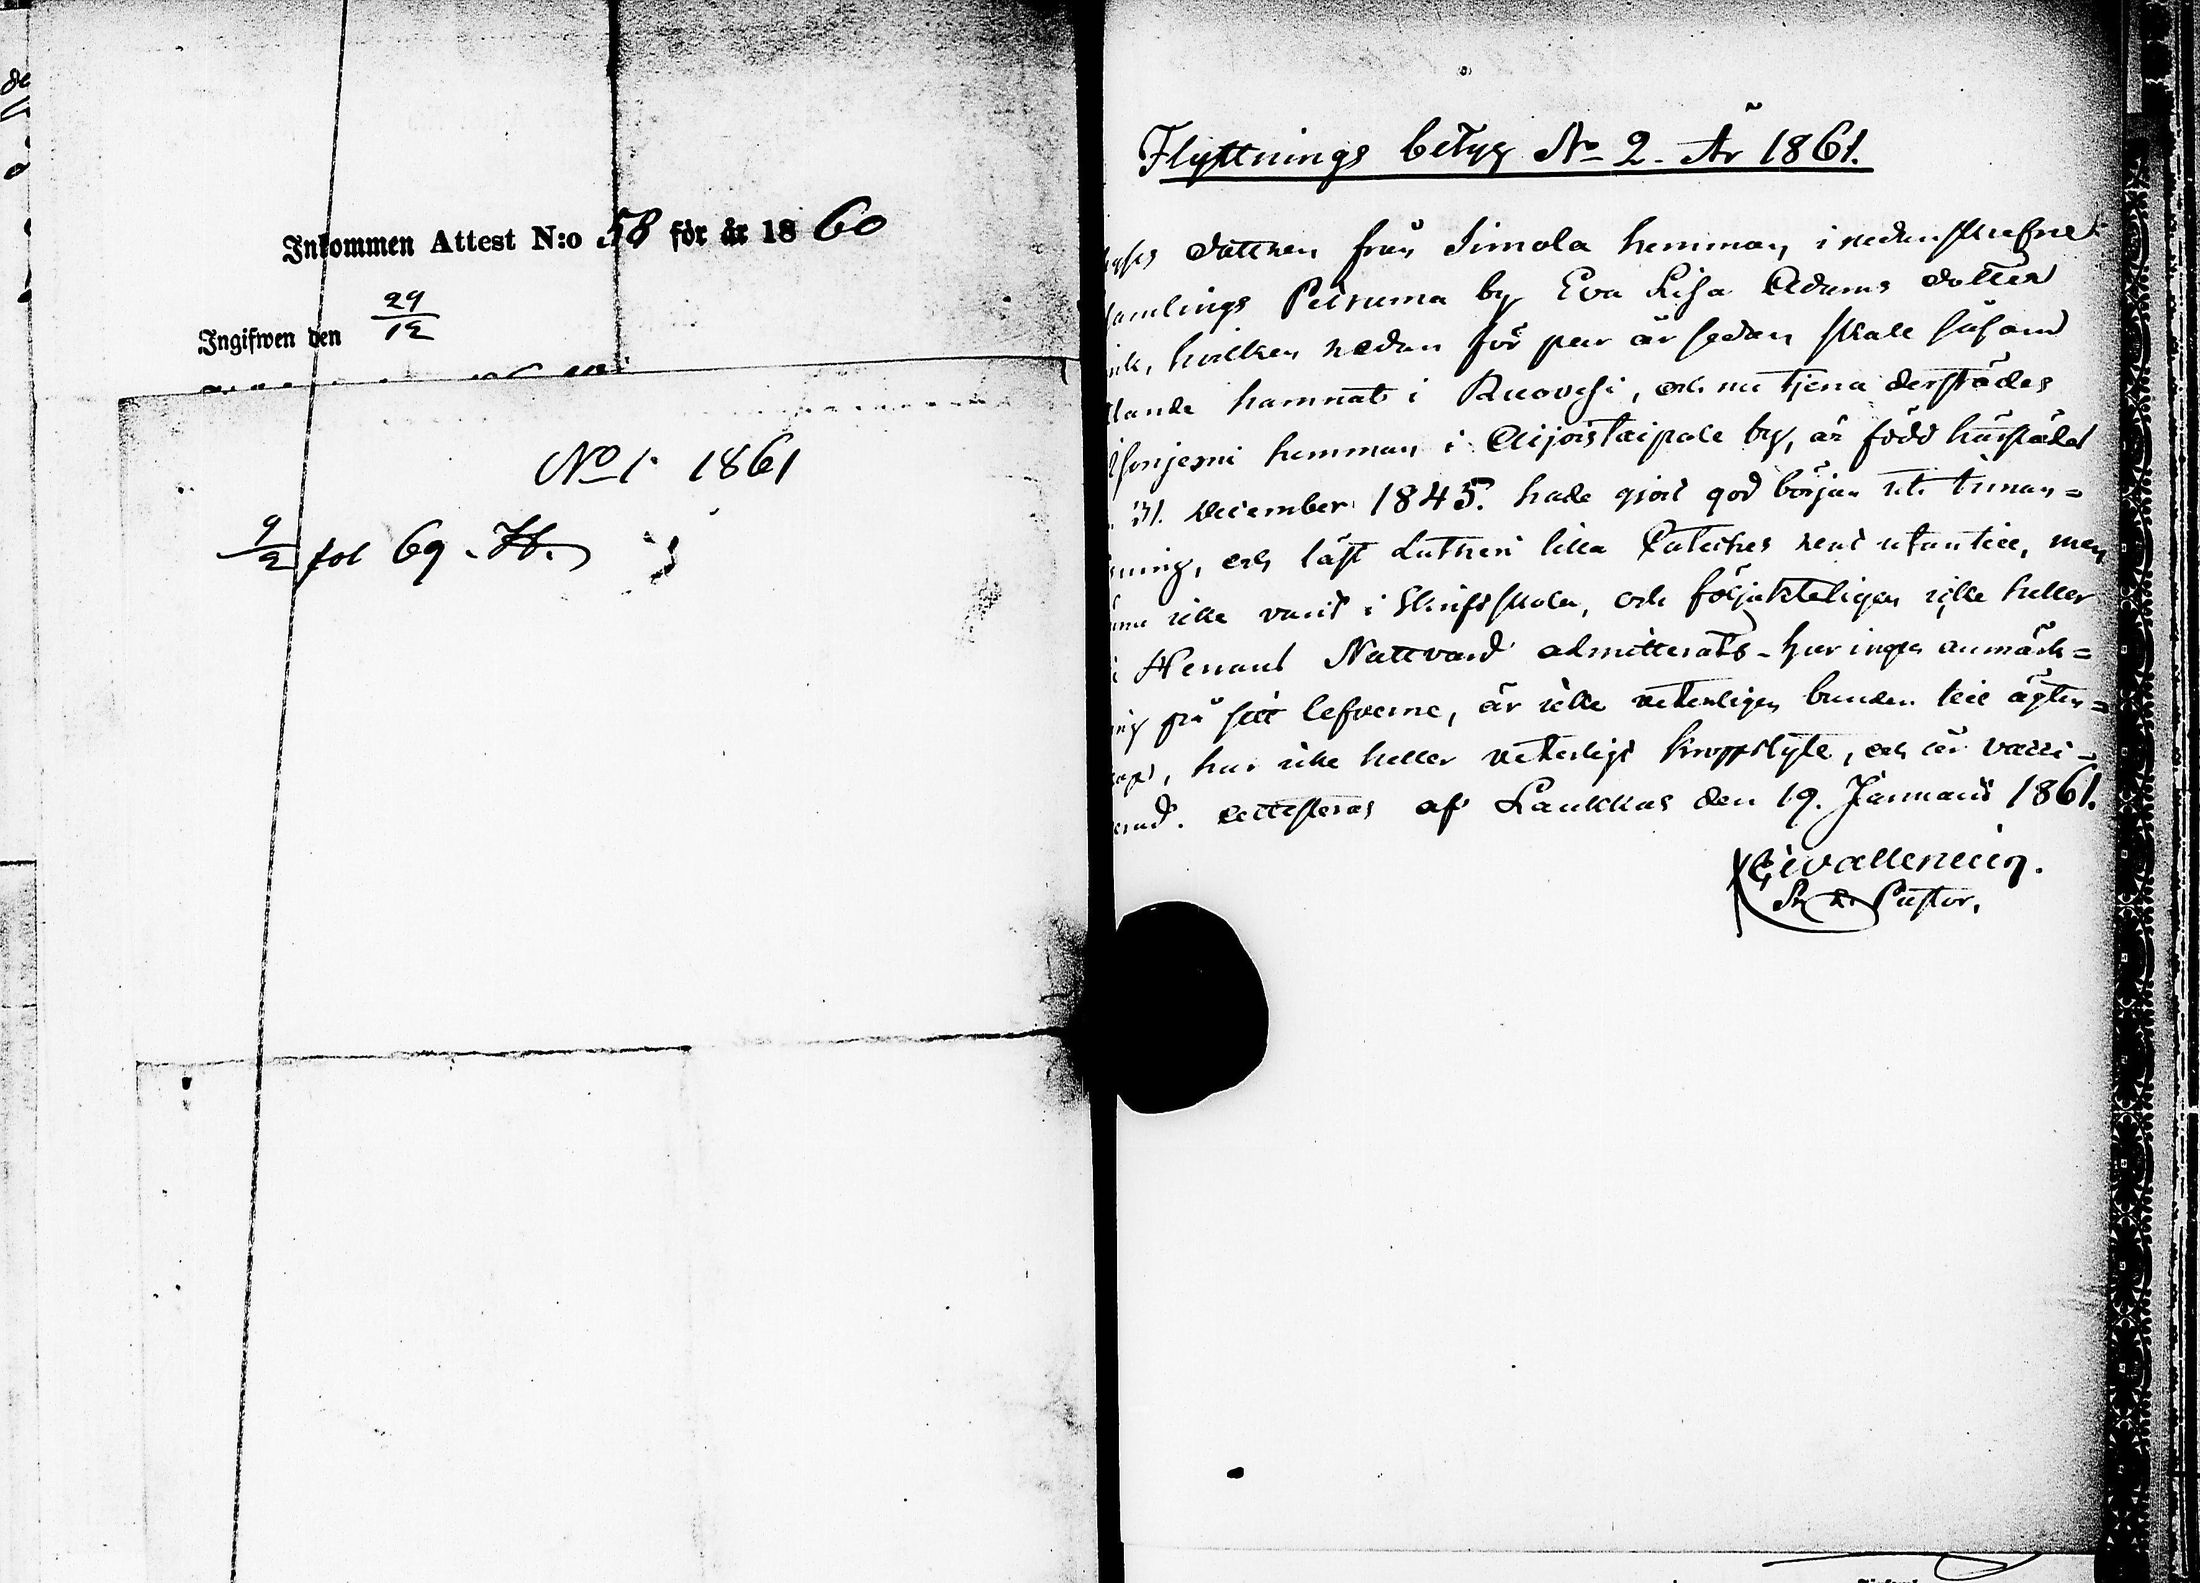 Inkommen Attest N:o 58 för år 1860
Ingifwen den 29/12
No 1. 1861
9/2 fol 69. H.
Flyttnings betyg No 2. År 1861.
dottren från Simola hemman, i nedanskrefne
samlings Peiruma by Eva Lisa Adams dotter
hvilken redan för par år sedan skall såsom
hamnat i Ruovesi, och nu tjena derstädes
hemman i Äijoistaipale by, är född härstädes
31. December 1845. hade gjort god början uti innan=
och läst Lutheri lilla Cateches rent utantill, men
icke varit i Skriftskola, och följakteligen icke heller
Herrans Nattvard admitterats - har ingen anmärk=
ing på sitt lefverne, är icke veterligen bunden till ägten=
, har icke heller veterligt kroppslyte, och är vacci-
nerad. attesteras af Laukkas den 19. Januarii 1861.
Pastor.